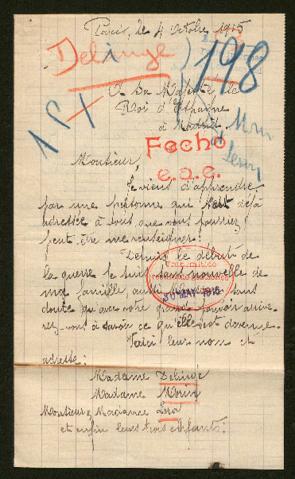 Paris, le 4 Octobre 1915
Delinge
198
A Sa Majesté le
Roi d'Espagne
à Madrid.
Fecho
Monsieur,
e.o.e.
Je viens d'apprendre
par une personne qui s'est déjà
adressée à vous que vous pourriez
peut-être me renseigner.
Depuis le début de
la guerre je suis sans nouvelle de
ma famille, aussi
doute qu'avec votre grand pouvoir arrive-
rez-vous à savoir ce qu'elle est devenue.
Voici leur nom et
adresse:
Madame Delinge
Madame
Monsieur & Madame
et enfin leurs trois enfants.